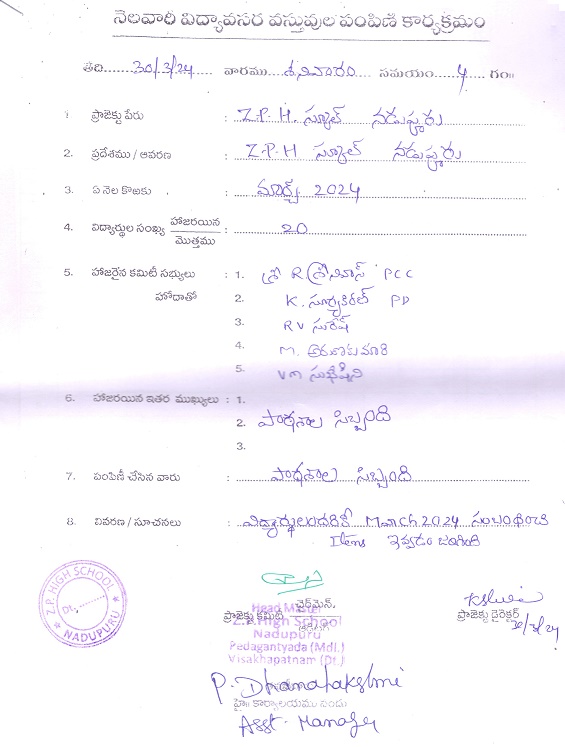 నెలవారీ విద్యావసర వస్తువుల పంపిణీ కార్యక్రమం
తేది.......30/3/24..... వారము...శనివారం..... సమయం....4.... గం॥
1. ప్రాజెక్టు పేరు : Z.P.H. స్కూల్ నడుపూరు
2. ప్రదేశము / ఆవరణ : Z.P.H స్కూల్ నడుపూరు
3. ఏ నెల కొఱకు : మార్చ్ 2024
4. విద్యార్థుల సంఖ్య హాజరయిన / మొత్తము : 20
5. హాజరైన కమిటీ సభ్యులు : 1. శ్రీ R శ్రీనివాస్ PCC
హోదాతో 2. K. సూర్యకిరణ్ PD
3. RV సురేష్
4. M. అరుణకుమారి
5. VM
6. హాజరయిన ఇతర ముఖ్యులు : 1.
2. పాఠశాల సిబ్బంది
3.
7. పంపిణీ చేసిన వారు : పాఠశాల సిబ్బంది
8. వివరణ / సూచనలు : విద్యార్థులందరికీ March 2024 సంబంధించి
Items ఇవ్వడం జరిగింది
Z.P. HIGH SCHOOL
Dt.,
NADUPURU
ప్రాజెక్టు కమిటీ ఛైర్మెన్,
Head Master
Z.P. High School
Nadupuru
Pedagantyada (Mdl.)
Visakhapatnam (Dt.)
ప్రాజెక్టు డైరెక్టర్
30/3/24
P. Dhanalakshmi
హై॥ కార్యాలయము నందు
Asst. Manager